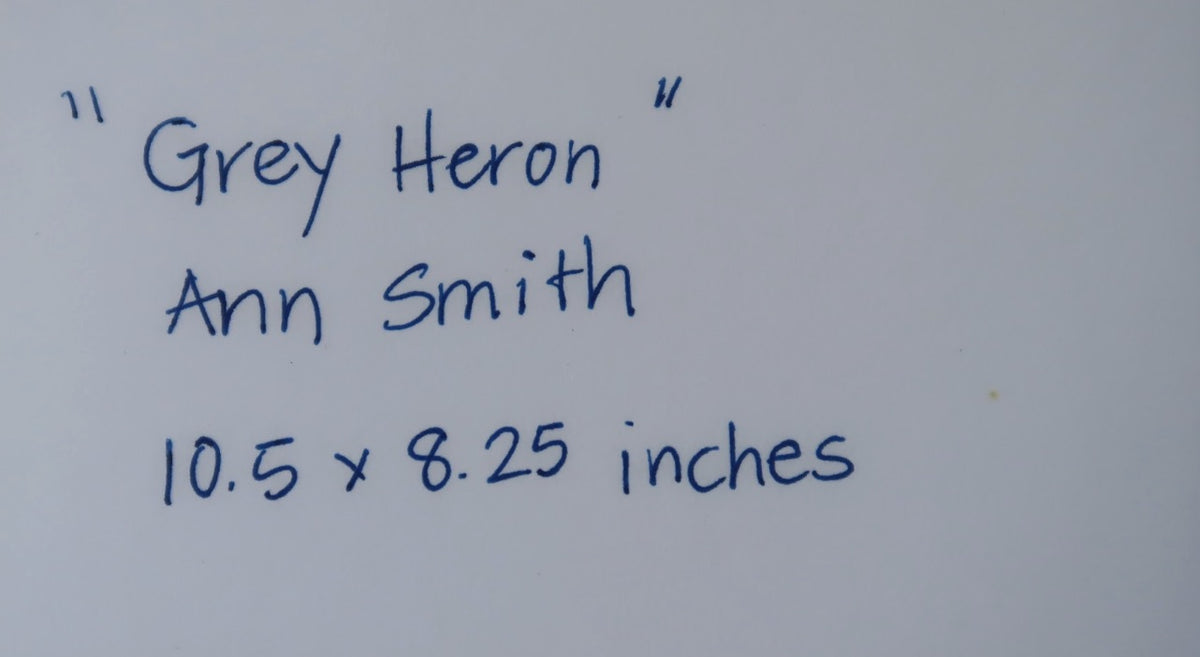 "Grey Heron"
Ann Smith
10.5 x 8.25 inches